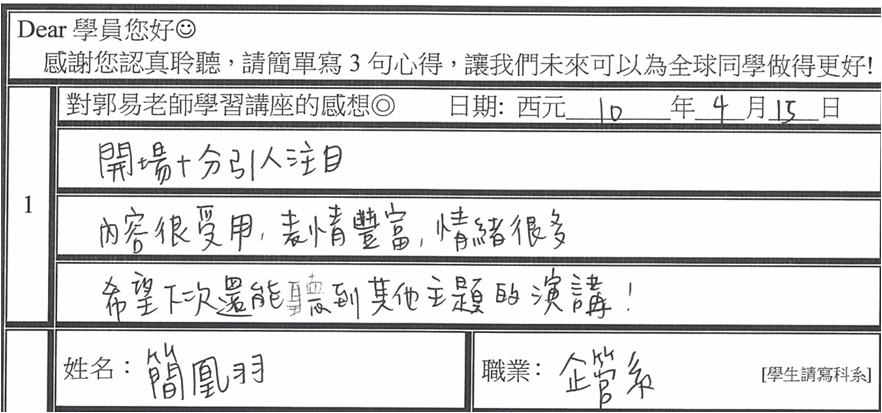 Dear 學員您好☺
感謝您認真聆聽，請簡單寫 3 句心得，讓我們未來可以為全球同學做得更好!
對郭易老師學習講座的感想◎ 日期: 西元 10 年 4 月 15 日
開場十分引人注目
1
內容很受用, 表情豐富, 情緒很多
希望下次還能聽到其他主題的演講!
姓名： 簡鳳羽 職業： 企管系 [學生請寫科系]